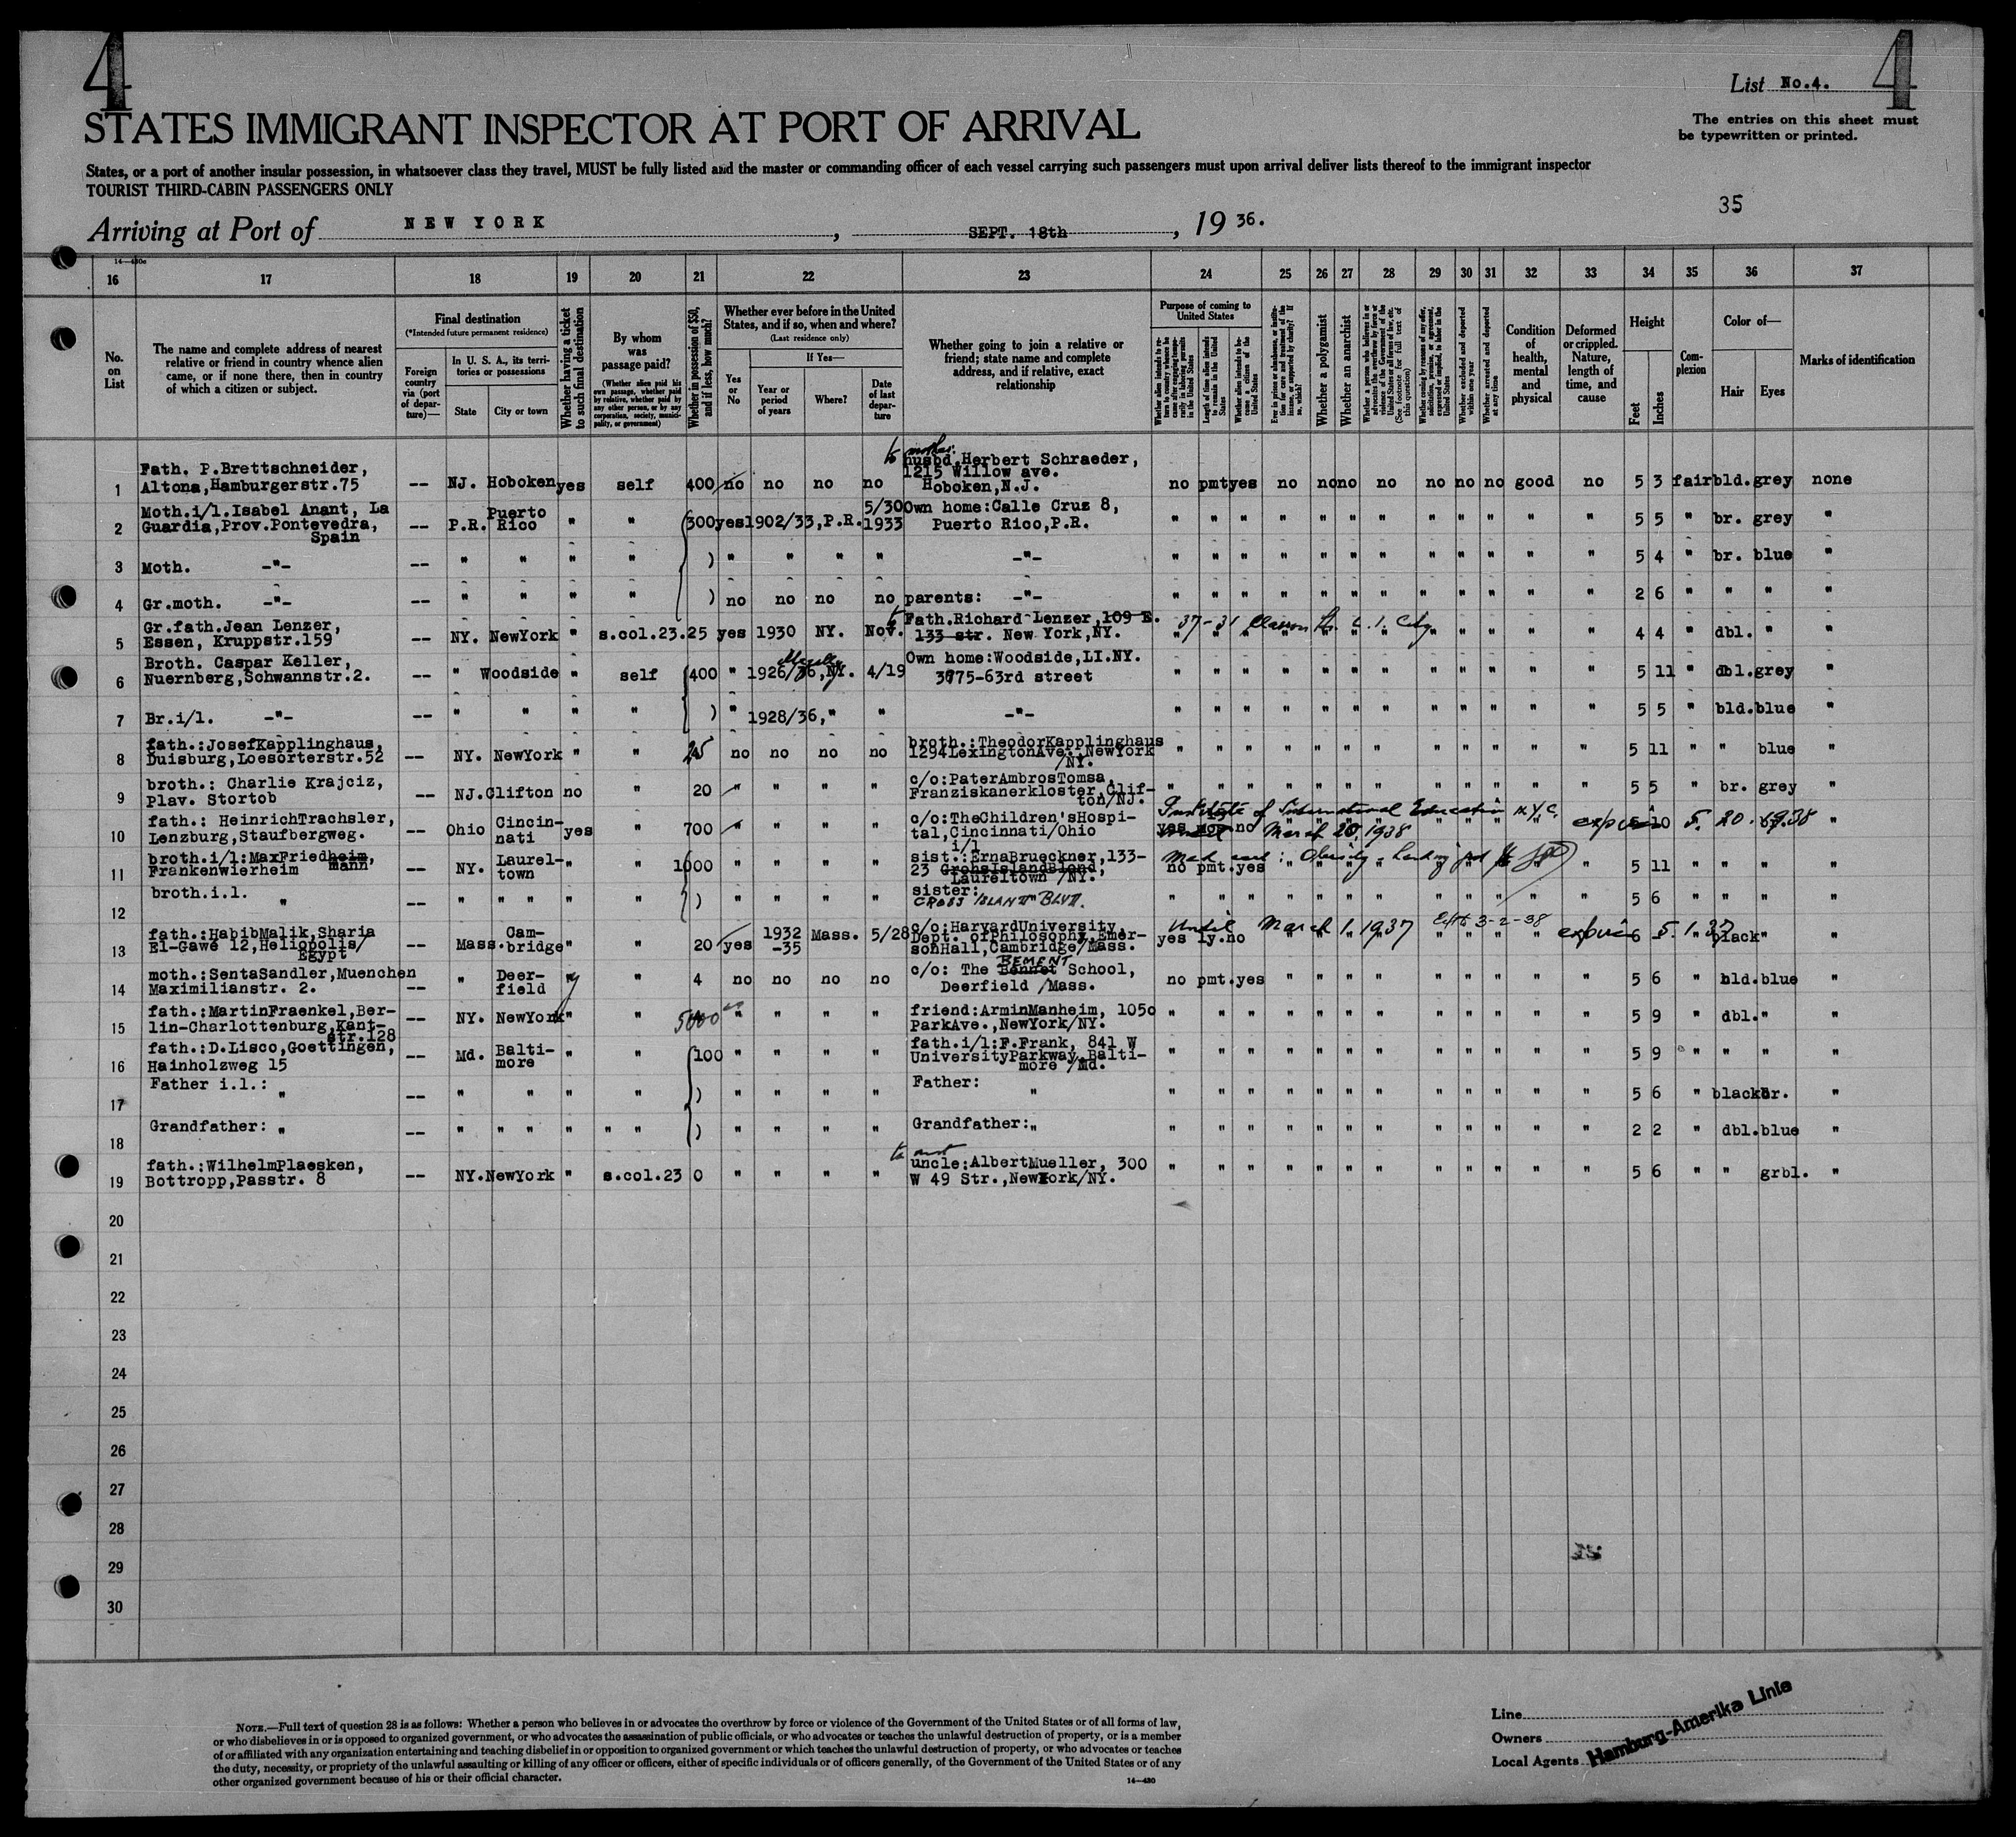 4
4
List No.4.
STATES IMMIGRANT INSPECTOR AT PORT OF ARRIVAL
The entries on this sheet must
be typewritten or printed.
States, or a port of another insular possession, in whatsoever class they travel, MUST be fully listed and the master or commanding officer of each vessel carrying such passengers must upon arrival deliver lists thereof to the immigrant inspector
TOURIST THIRD-CABIN PASSENGERS ONLY
35
Arriving at Port of NEW YORK, SEPT. 18th, 1936.
16 17 18 19 20 21 22 23 24 25 26 27 28 29 30 31 32 33 34 35 36 37
No.
on
List
The name and complete address of nearest
relative or friend in country whence alien
came, or if none there, then in country
of which a citizen or subject.
Final destination
(*Intended future permanent residence)
Foreign
country
via (port
of depar-
ture)—
In U. S. A., its terri-
tories or possessions
State City or town
Whether having a ticket
to such final destination
By whom
was
passage paid?
(Whether alien paid his
own passage, whether paid
by relative, whether paid by
any other person, or by any
corporation, society, munici-
pality, or government)
Whether in possession of $50,
and if less, how much?
Whether ever before in the United
States, and if so, when and where?
(Last residence only)
Yes
or
No
If Yes—
Year or
period
of years
Where?
Date
of last
depar-
ture
Whether going to join a relative or
friend; state name and complete
address, and if relative, exact
relationship
Purpose of coming to
United States
Length of time alien intends
to remain in the United
States
Whether alien intends to be-
come a citizen of the
United States
Whether a polygamist
Whether an anarchist
Whether excluded and deported
within one year
Whether arrested and deported
at any time
Condition
of
health,
mental
and
physical
Deformed
or crippled.
Nature,
length of
time, and
cause
Height
Feet Inches
Com-
plexion
Color of—
Hair Eyes
Marks of identification
1 Fath. P.Brettschneider,
Altona,Hamburgerstr.75 -- NJ. Hoboken yes self 400 no no no no
to mother:
husbd.Herbert Schraeder,
1215 Willow ave.
Hoboken,N.J. no pmt yes no no no no no no no good no 5 3 fair bld. grey none
2 Moth.i/l.Isabel Anant, La
Guardia,Prov.Pontevedra,
Spain -- P.R. Puerto
Rico " " 300 yes 1902/33,P.R. 5/30
1933 Own home:Calle Cruz 8,
Puerto Rico,P.R. " " " " " " " " " " " " 5 5 " br. grey "
3 Moth. -"- -- " " " " ) " " " " -"- " " " " " " " " " " " " 5 4 " br. blue "
4 Gr.moth. -"- -- " " " " ) no no no no parents: -"- " " " " " " " " " " " " 2 6 " " " "
5 Gr.fath.Jean Lenzer,
Essen, Kruppstr.159 -- NY. NewYork " s.col.23. 25 yes 1930 NY. Nov. Fath.Richard Lenzer, 109 E.
133 str. New York,NY. 37-31 L. I. City 4 4 " dbl. " "
6 Broth. Caspar Keller,
Nuernberg,Schwannstr.2. -- " Woodside " self 400 " 1926/36,NY. 4/19 Own home:Woodside,LI.NY.
3775-63rd street " " " " " " " " " " " " 5 11 " dbl. grey "
7 Br.i/l. -"- -- " " " " ) " 1928/36," " -"- " " " " " " " " " " " " 5 5 " bld. blue "
8 fath.:JosefKapplinghaus,
Duisburg,Loesorterstr.52 -- NY. NewYork " " 25 no no no no broth.:TheodorKapplinghaus
1294LexingtonAve.,NewYork
/NY. " " " " " " " " " " " " 5 11 " " blue "
9 broth.: Charlie Krajciz,
Plav. Stortob -- NJ. Clifton no " 20 " " " " c/o:PaterAmbrosTomsa,
Franziskanerkloster,Clif-
ton/NJ. " " " " " " " " " " " " 5 5 " br. grey "
10 fath.: HeinrichTrachsler,
Lenzburg,Staufbergweg. -- Ohio Cincin-
nati yes " 700 " " " " c/o:TheChildren'sHospi-
tal,Cincinnati/Ohio Institute of International Education N.Y.C.
yes no March 20, 1938 5 10
11 broth.i/l:MaxFriedheim,
mann
Frankenwierheim -- NY. Laurel-
town " " 1000 " " " " i/l
sist.:ErnaBrueckner,133-
23 GrohsIslandBlond,
Laureltown /NY. Med cert: Obesity
no pmt. yes 5 11 " " " "
12 broth.i.l. " -- " " " " " ) " " " " sister:
CROSS ISLAND BLVD. " " " " " " " " " " " " 5 6 " " " "
13 fath.:HabibMalik,Sharia
El-Gawé 12,Heliopolis/
Egypt -- Mass. Cam-
bridge " " 20 yes 1932
-35 Mass. 5/28 c/o:HarvardUniversity,
Dept. ofPhilosophy,Emer-
sonHall,Cambridge/Mass. Until March 1, 1937 3-2-38
yes 1y. no 6 - black " "
14 moth.:SentaSandler,Muenchen
Maximilianstr. 2. -- " Deer-
field " " 4 no no no no c/o: The Bennet School,
BEMENT
Deerfield /Mass. no pmt. yes " " " " " " " " " 5 6 " bld. blue "
15 fath.:MartinFraenkel,Ber-
lin-Charlottenburg,Kant-
str.128 -- NY. NewYork " " 5000 " " " " friend:ArminManheim, 1050
ParkAve.,NewYork/NY. " " " " " " " " " " " " 5 9 " dbl. " "
16 fath.:D.Lisco,Goettingen,
Hainholzweg 15 -- Md. Balti-
more " " 100 " " " " fath.i/l:F.Frank, 841 W
UniversityParkway,Balti-
more /Md. " " " " " " " " " " " " 5 9 " " " "
17 Father i.l.: " -- " " " " ) " " " " Father: " " " " " " " " " " " " " 5 6 " black br. "
18 Grandfather: " -- " " " " " " ) " " " " Grandfather:" " " " " " " " " " " " " 2 2 " dbl. blue "
19 fath.:WilhelmPlaesken,
Bottropp,Passtr. 8 -- NY. NewYork " s.col.23 0 " " " " uncle:AlbertMueller, 300
W 49 Str.,NewYork/NY. " " " " " " " " " " " " 5 6 " " grbl. "
20
21
22
23
24
25
26
27
28
29
30
NOTE.—Full text of question 28 is as follows: Whether a person who believes in or advocates the overthrow by force or violence of the Government of the United States or of all forms of law,
or who disbelieves in or is opposed to organized government, or who advocates the assassination of public officials, or who advocates or teaches the unlawful destruction of property, or is a member
of or affiliated with any organization entertaining and teaching disbelief in or opposition to organized government or which teaches the unlawful destruction of property, or who advocates or teaches
the duty, necessity, or propriety of the unlawful assaulting or killing of any officer or officers, either of specific individuals or of officers generally, of the Government of the United States or of any
other organized government because of his or their official character.
14—430
Line
Owners
Local Agents
Hamburg-Amerika Linie